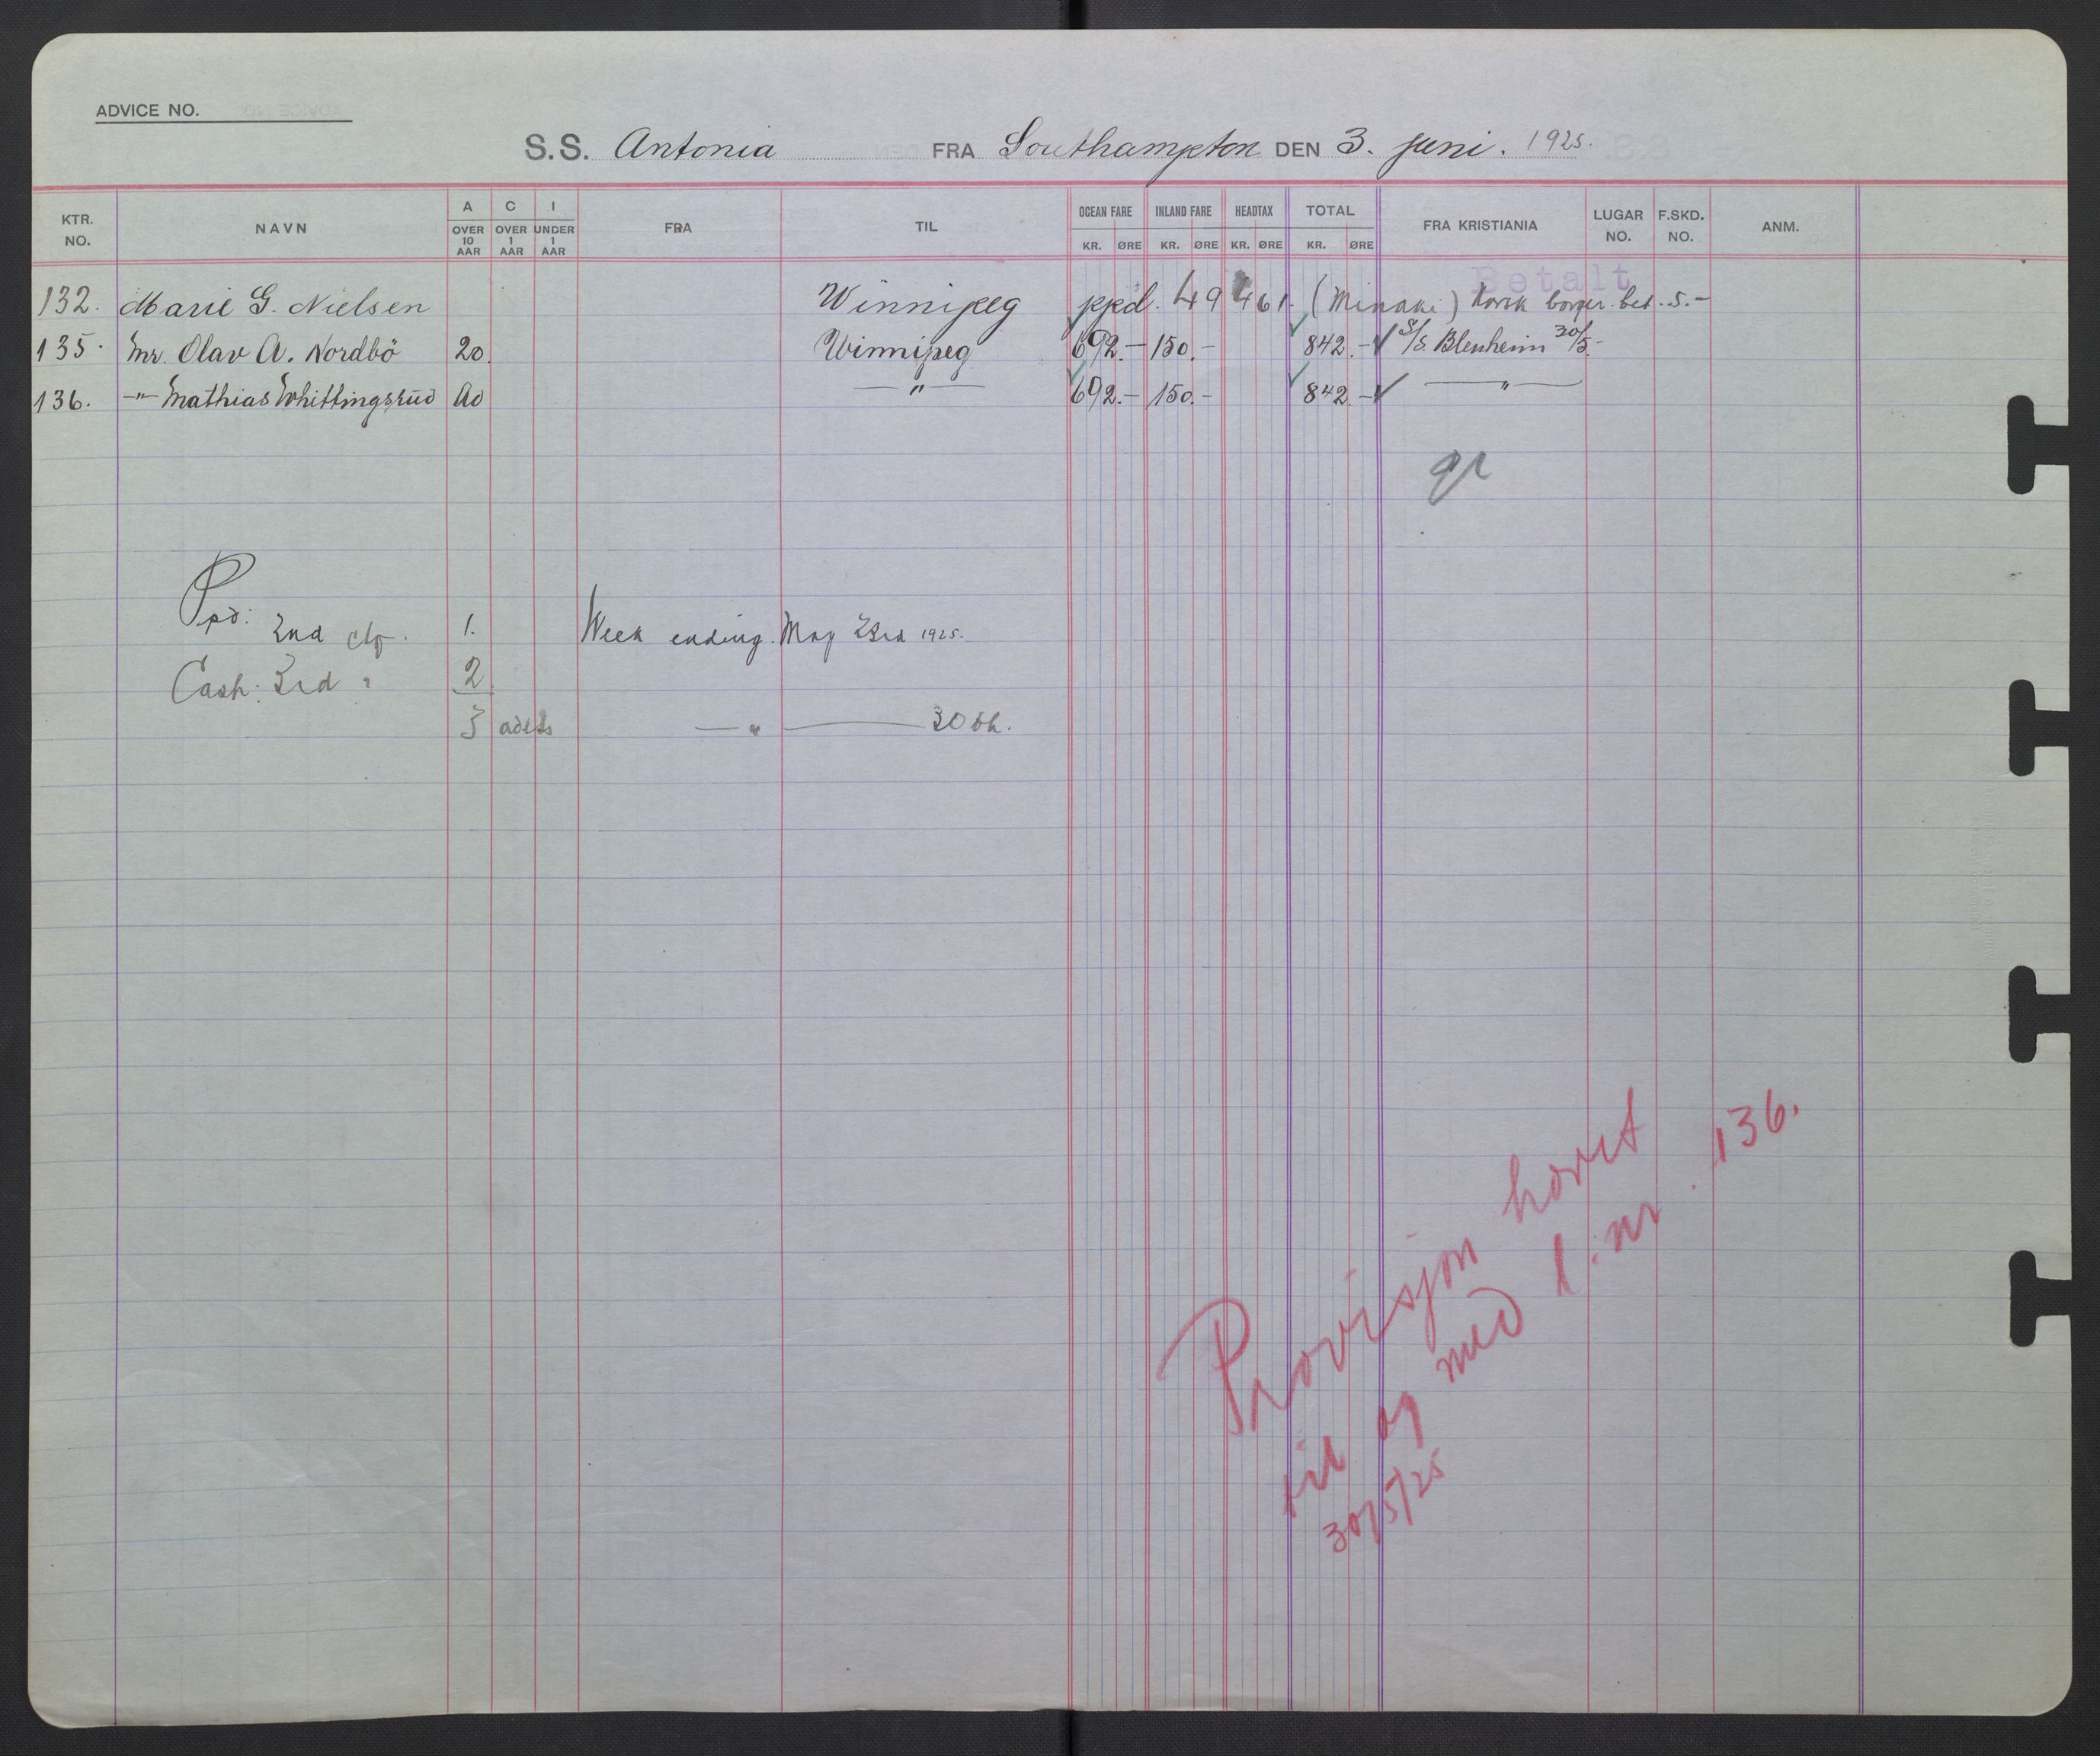 ADVICE NO.
S.S. Antonia FRA Southampton DEN 3. juni. 1925.
KTR. NO. NAVN A OVER 10 AAR C OVER 1 AAR I UNDER 1 AAR FRA TIL OCEAN FARE KR. ØRE INLAND FARE KR. ØRE HEADTAX KR. ØRE TOTAL KR. ØRE FRA KRISTIANIA LUGAR NO. F.SKD. NO. ANM.
Betalt
132. Marie G. Nielsen Winnipeg ppd. 49 461. (Minaki) norsk borger. bet. 5.-
135. Mr. Olav A. Nordbö 20. Winnipeg 692.- 150.- 842.- S/S. Blenheim 30/5.-
136. -"- Mathias Whittingsrud Ad -"- 692.- 150.- 842.- -"-
Ppd: 2nd 1. Week ending May 23rd 1925.
Cash: 3rd " 2
3 adlts -"- 30th.
Provisjon hevet
til og med l.nr. 136.
30/5/25